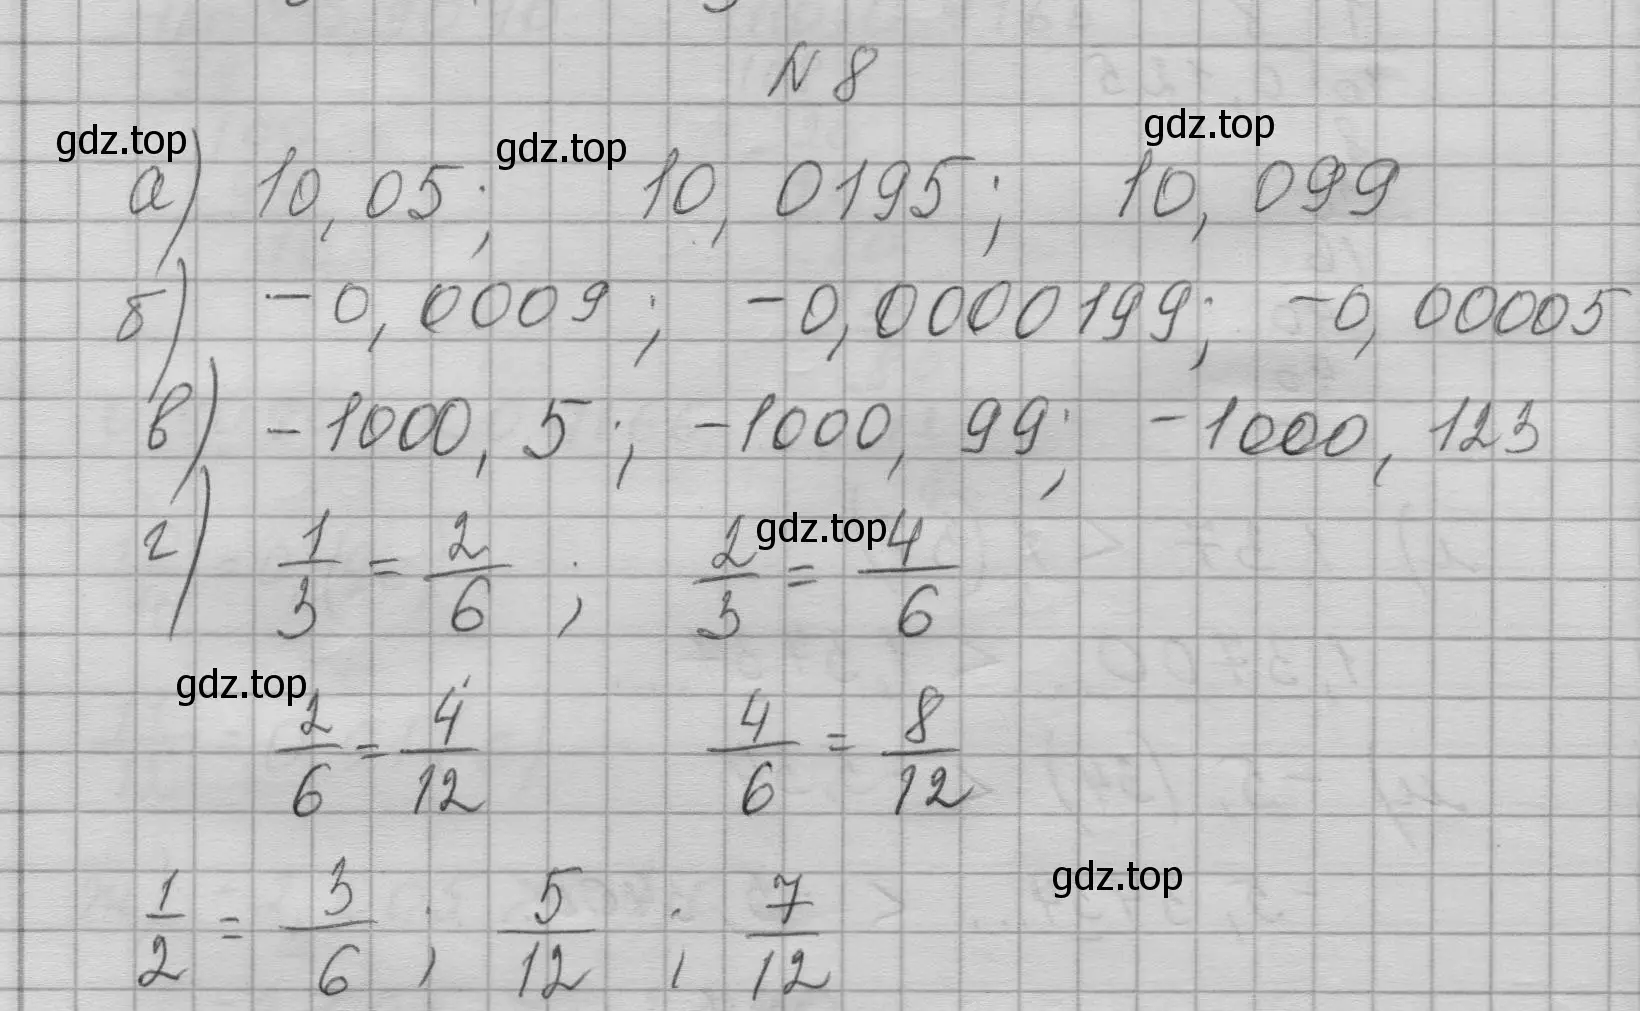 N 8
gdz.top gdz.top gdz.top
а) 10,05; 10,0195; 10,099
б) -0,0009; -0,0000199; -0,00005
в) -1000,5; -1000,99; -1000,123
г) 1/3 = 2/6; 2/3 = 4/6
gdz.top
gdz.top
2/6 = 4/12 4/6 = 8/12
gdz.top
1/2 = 3/6; 5/12; 7/12